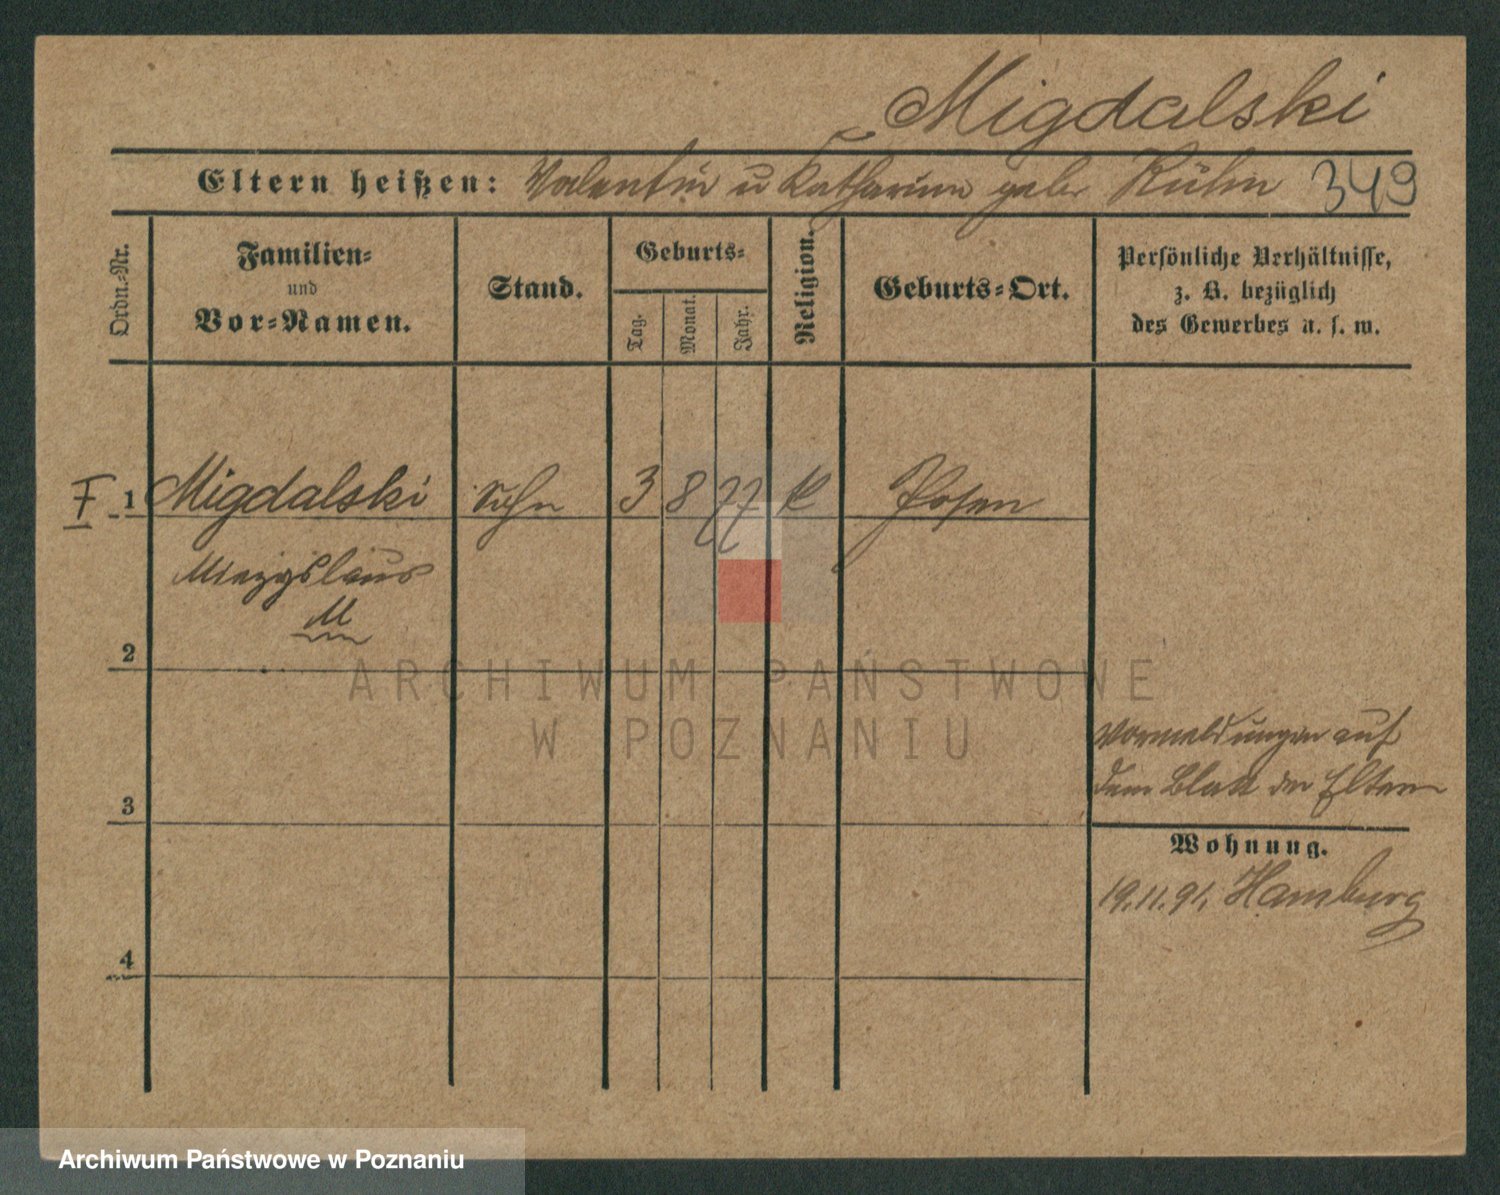 Migdalski
Eltern heißen: Valentin u Katharina geb. Kühn 349
Ordn.-Nr.
Familien-
und
Vor-Namen.
Stand.
Geburts-
Tag.
Monat.
Jahr.
Religion.
Geburts-Ort.
Persönliche Verhältnisse,
z. B. bezüglich
des Gewerbes u. s. w.
1 Migdalski Sohn 3 8 77 k Posen
Miezyslaus
M
2
3
4
Vormeldungen auf
dem Blatt der Eltern
Wohnung.
19.11.91, Hamburg
ARCHIWUM PAŃSTWOWE
W POZNANIU
Archiwum Państwowe w Poznaniu